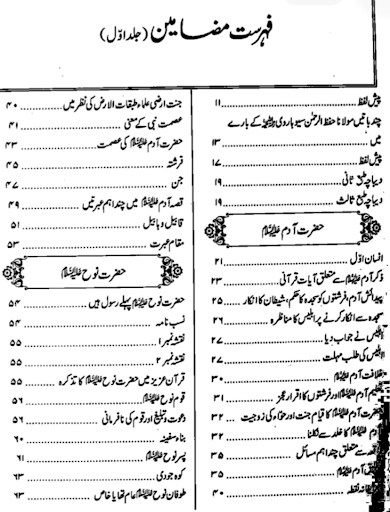 فہرست مضامین (جلد اوّل)
پیش لفظ ۱۱
چند باتیں مولانا حفظ الرحمٰن سیوہاروی کے بارے
میں ۱۳
پیش لفظ ۱۷
دیباچہ طبع ثانی ۱۹
دیباچہ طبع ثالث ۱۹
حضرت آدم علیہ السلام
انسان اوّل ۲۱
ذکر آدم علیہ السلام سے متعلق آیات قرآنی ۲۳
پیدائش آدم، فرشتوں کو سجدہ کا حکم، شیطان کا انکار ۲۵
سجدہ سے انکار کرنے پر ابلیس کا مناظرہ ۲۶
ابلیس نے جواب دیا ۲۷
ابلیس کی طلب مہلت ۲۷
خلافت آدم علیہ السلام ۳۰
تعلیم آدم علیہ السلام اور فرشتوں کا اقرار عجز ۳۱
حضرت آدم علیہ السلام کا قیام جنت اور حواء کی زوجیت ۳۲
آدم علیہ السلام کا خلد سے نکلنا ۳۲
سے متعلق چند اہم مسائل ۳۵
آدم علیہ السلام ۳۵
نقطہ ۴۰
جنت ارضی علماء طبقات الارض کی نظر میں ۴۰
عصمت نبی کے معنی ۴۱
حضرت آدم علیہ السلام کی عصمت ۴۳
فرشتہ ۴۵
جن ۴۷
قصہ آدم علیہ السلام میں چند اہم عبرتیں ۴۹
قابیل و ہابیل ۵۱
مقام عبرت ۵۳
حضرت نوح علیہ السلام
حضرت نوح علیہ السلام پہلے رسول ہیں ۵۴
نسب نامہ ۵۴
نقشہ نمبر ۱ ۵۵
نقشہ نمبر ۲ ۵۵
قرآن عزیز میں حضرت نوح علیہ السلام کا تذکرہ ۵۵
قوم نوح علیہ السلام ۵۶
دعوت و تبلیغ اور قوم کی نافرمانی ۵۶
بناء سفینہ ۶۰
پسر نوح علیہ السلام ۶۱
کوہ جودی ۶۳
طوفان نوح علیہ السلام عام تھا یا خاص ۶۳